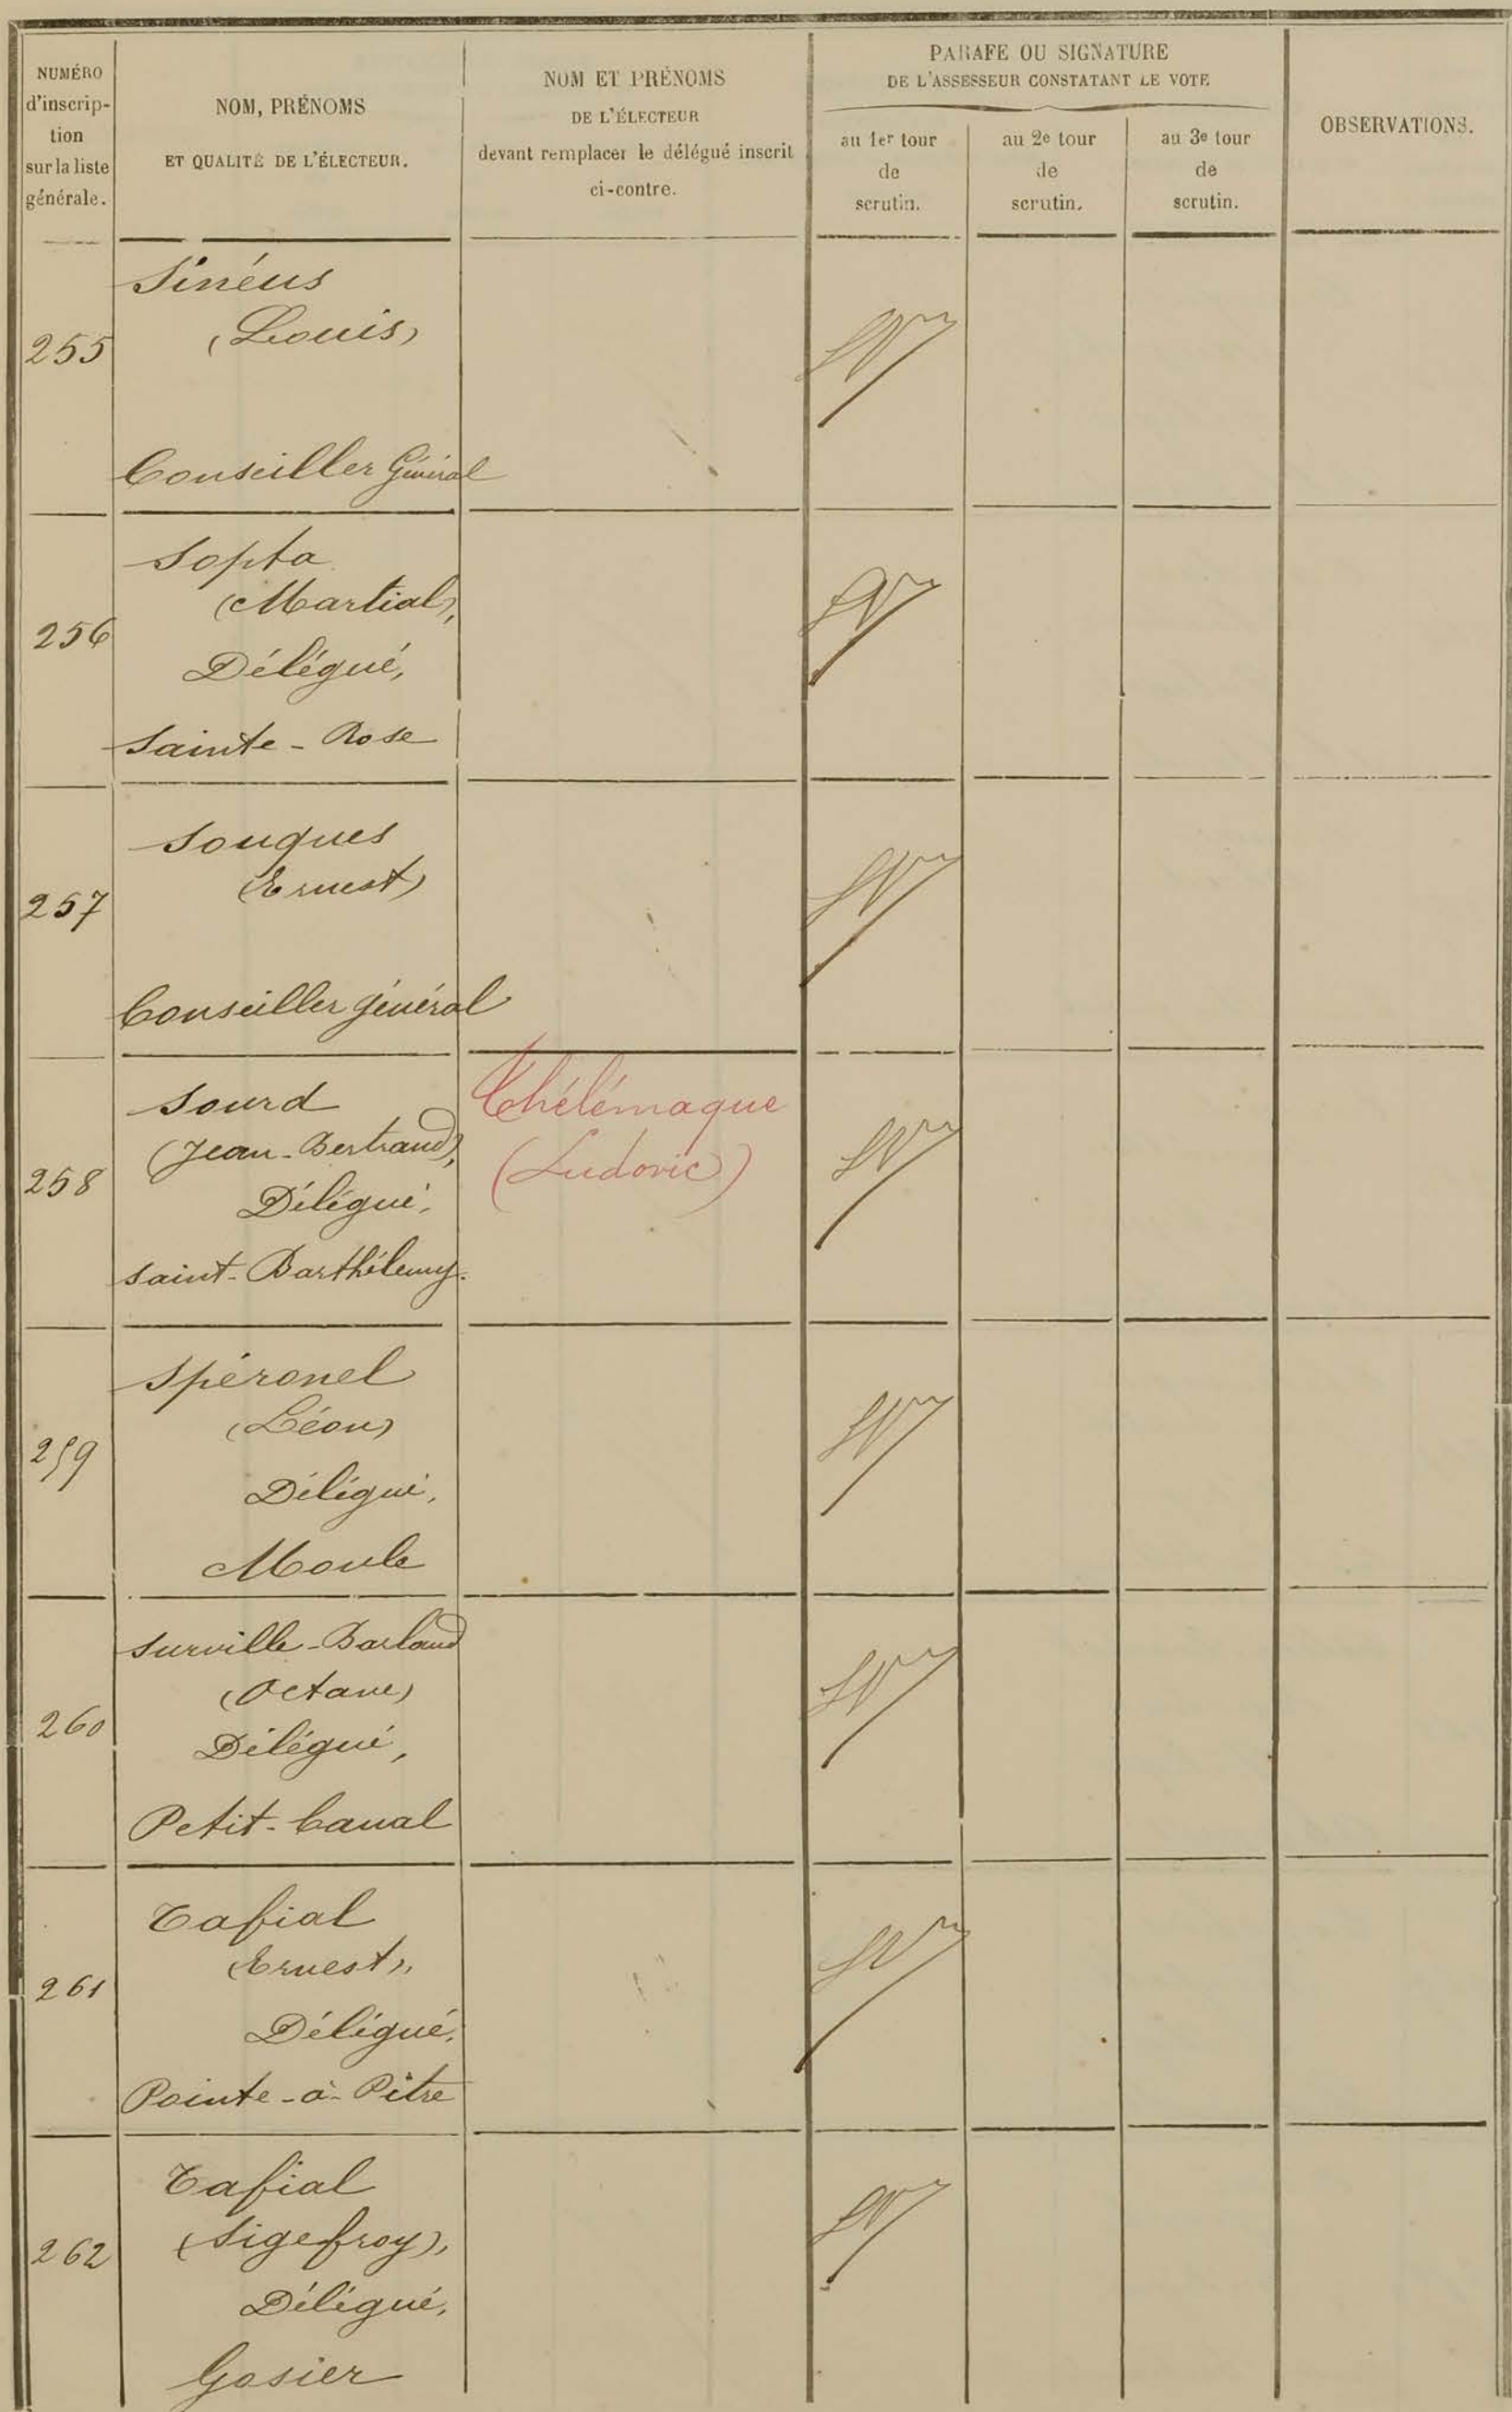 NUMÉRO
d'inscrip-
tion
sur la liste
générale.
NOM, PRÉNOMS
ET QUALITÉ DE L'ÉLECTEUR.
NOM ET PRÉNOMS
DE L'ÉLECTEUR
devant remplacer le délégué inscrit
ci-contre.
PARAFE OU SIGNATURE
DE L'ASSESSEUR CONSTATANT LE VOTE
au 1er tour
de
scrutin.
au 2e tour
de
scrutin.
au 3e tour
de
scrutin.
OBSERVATIONS.
255
Sinéus
(Louis)
Conseiller Général
256
Sopta
(Martial),
Délégué,
Sainte-Rose
257
Souques
(Ernest)
Conseiller général
258
Sourd
(Jean-Bertrand),
Délégué,
Saint-Barthélemy.
Thélémaque
(Ludovic)
259
Spéronel
(Léon)
Délégué,
Moule
260
Surville-Barland
(Octave)
Délégué,
Petit-Canal
261
Tafial
(Ernest),
Délégué,
Pointe-à-Pitre
262
Tafial
(Sigefroy),
Délégué,
Gosier